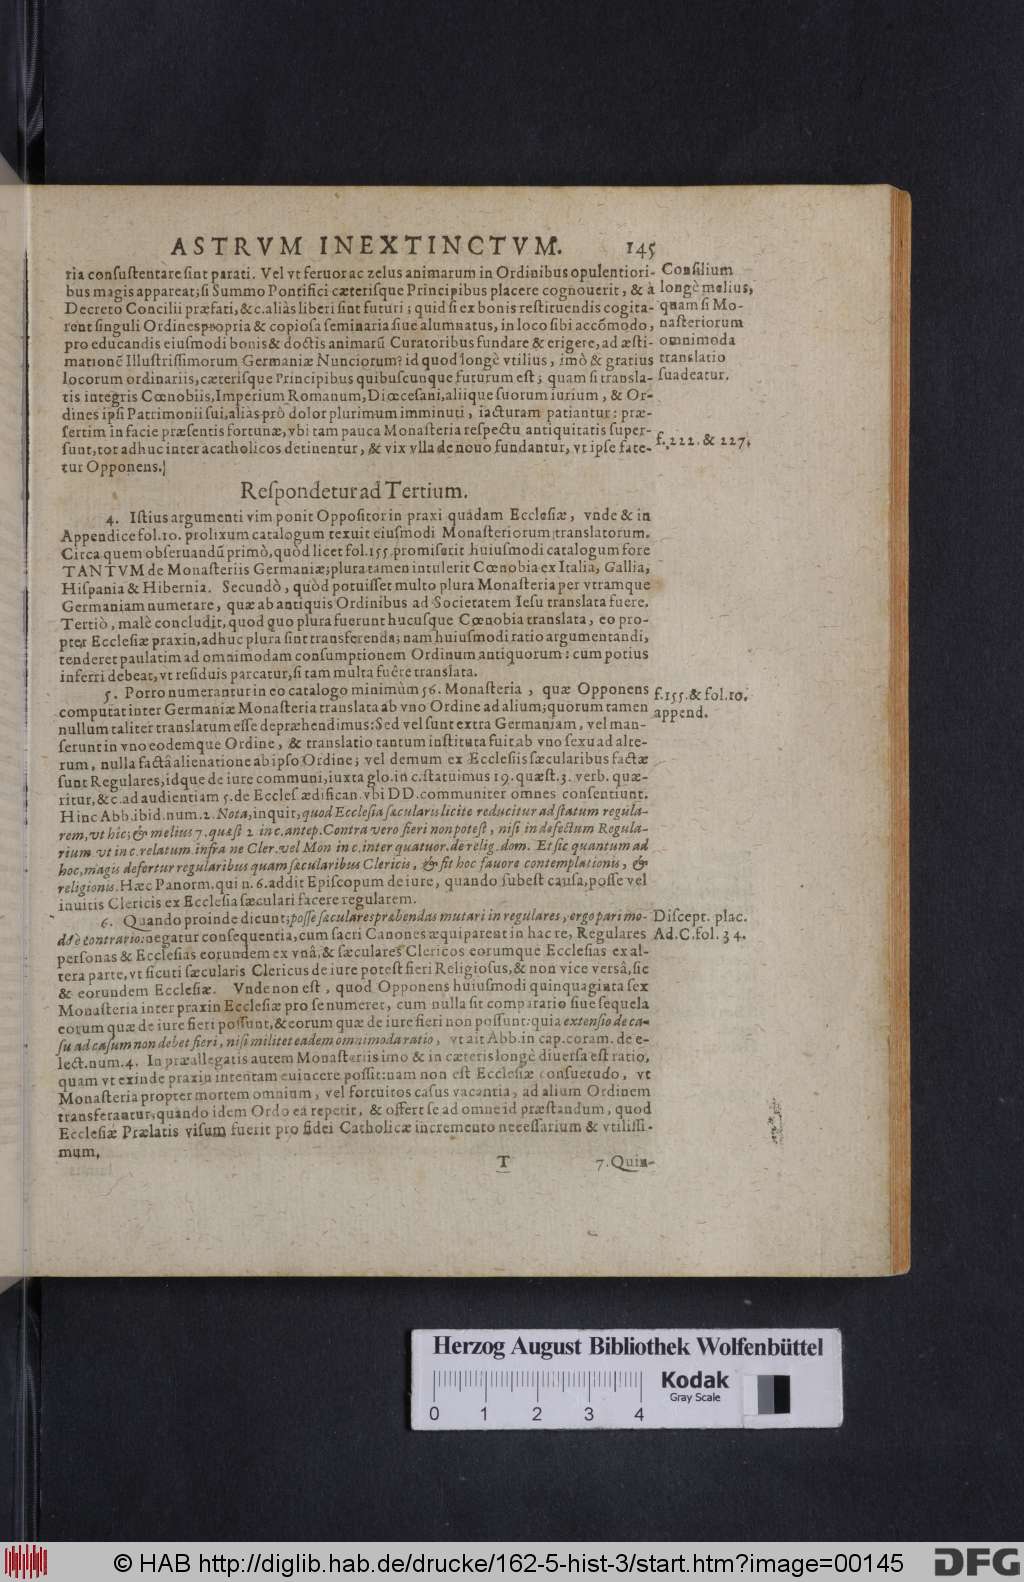 ASTRVM INEXTINCTVM. 145
ria conſuſtentare ſint parati. Vel vt feruor ac zelus animarum in Ordinibus opulentiori-
bus magis appareat; ſi Summo Pontifici cæteriſque Principibus placere cognouerit, & à
Decreto Concilii præfati, &c. aliàs liberi ſint futuri; quid ſi ex bonis reſtituendis cogita-
rent ſinguli Ordines propria & copioſa ſeminaria ſiue alumnatus, in loco ſibi accõmodo,
pro educandis eiuſmodi bonis & doctis animarũ Curatoribus fundare & erigere, ad æſti-
mationē Illuſtriſſimorum Germaniæ Nunciorum? id quod longè vtilius, imò & gratius
locorum ordinariis, cæteriſque Principibus quibuſcunque futurum eſt; quam ſi transla-
tis integris Cœnobiis, Imperium Romanum, Diœceſani, aliique ſuorum iurium, & Or-
dines ipſi Patrimonii ſui, aliàs prò dolor plurimum imminuti, iacturam patiantur: præ-
ſertim in facie præſentis fortunæ, vbi tam pauca Monaſteria reſpectu antiquitatis ſuper-
ſunt, tot adhuc inter acatholicos detinentur, & vix vlla de nouo fundantur, vt ipſe fate-
tur Opponens.
Conſilium
longè melius,
quam ſi Mo-
naſteriorum
omnimoda
translatio
ſuadeatur.
f. 222. & 227.
Reſpondetur ad Tertium.
4. Iſtius argumenti vim ponit Oppoſitor in praxi quadam Eccleſiæ, vnde & in
Appendice fol. 10. prolixum catalogum texuit eiuſmodi Monaſteriorum translatorum.
Circa quem obſeruandũ primò, quòd licet fol. 155. promiſerit huiuſmodi catalogum fore
TANTVM de Monaſteriis Germaniæ; plura tamen intulerit Cœnobia ex Italia, Gallia,
Hiſpania & Hibernia. Secundò, quòd potuiſſet multo plura Monaſteria per vtramque
Germaniam numerare, quæ ab antiquis Ordinibus ad Societatem Ieſu translata fuere.
Tertiò, malè concludit, quod quo plura fuerunt hucuſque Cœnobia translata, eo pro-
pter Eccleſiæ praxin, adhuc plura ſint transferenda; nam huiuſmodi ratio argumentandi,
tenderet paulatim ad omnimodam conſumptionem Ordinum antiquorum: cum potius
inferri debeat, vt reſiduis parcatur, ſi tam multa fuêre translata.
5. Porro numerantur in eo catalogo minimùm 56. Monaſteria, quæ Opponens
computat inter Germaniæ Monaſteria translata ab vno Ordine ad alium; quorum tamen
nullum taliter translatum eſſe depræhendimus: Sed vel ſunt extra Germaniam, vel man-
ſerunt in vno eodemque Ordine, & translatio tantum inſtituta fuit ab vno ſexu ad alte-
rum, nulla factâ alienatione ab ipſo Ordine; vel demum ex Eccleſiis ſæcularibus factæ
ſunt Regulares, idque de iure communi, iuxta glo. in c. ſtatuimus 19. quæſt. 3. verb. quæ-
ritur, &c. ad audientiam 5. de Eccleſ. ædifican. vbi DD. communiter omnes conſentiunt.
Hinc Abb. ibid. num. 2. Nota, inquit, quod Eccleſia ſacularis licite reducitur ad ſtatum regula-
rem, vt hic; & melius 7. quæſt 2 in c. antep. Contra vero fieri non poteſt, niſi in defectum Regula-
rium vt in c. relatum infra ne Cler. vel Mon in c. inter quatuor. de relig. dom. Et ſic quantum ad
hoc, magis defertur regularibus quam ſæcularibus Clericis, & fit hoc fauore contemplationis, &
religionis. Hæc Panorm. qui n. 6. addit Epiſcopum de iure, quando ſubeſt cauſa, poſſe vel
inuitis Clericis ex Eccleſia ſæculari facere regularem.
f. 155. & fol. 10.
append.
6. Quando proinde dicunt; poſſe ſaculares præbendas mutari in regulares, ergo pari mo-
do è contrario: negatur conſequentia, cum ſacri Canones æquiparent in hac re, Regulares
perſonas & Eccleſias eorundem ex vnâ, & ſæculares Clericos eorumque Eccleſias ex al-
tera parte, vt ſicuti ſæcularis Clericus de iure poteſt fieri Religioſus, & non vice versâ, ſic
& eorundem Eccleſiæ. Vnde non eſt, quod Opponens huiuſmodi quinquaginta ſex
Monaſteria inter praxin Eccleſiæ pro ſe numeret, cum nulla ſit comparatio ſiue ſequela
eorum quæ de iure fieri poſſunt, & eorum quæ de iure fieri non poſſunt: quia extenſio de ca-
ſu ad caſum non debet fieri, niſi militet eadem omnimoda ratio, vt ait Abb. in cap. coram. de e-
lect. num. 4. In præallegatis autem Monaſteriis imo & in cæteris longè diuerſa eſt ratio,
quam vt exinde praxin intentam euincere poſſit: nam non eſt Eccleſiæ conſuetudo, vt
Monaſteria propter mortem omnium, vel fortuitos caſus vacantia, ad alium Ordinem
transferantur, quando idem Ordo ea repetit, & offert ſe ad omne id præſtandum, quod
Eccleſiæ Prælatis viſum fuerit pro fidei Catholicæ incremento neceſſarium & vtiliſſi-
mum,
Diſcept. plac.
Ad. C. fol. 34.
T 7. Quin-
Herzog August Bibliothek Wolfenbüttel
0 1 2 3 4
Kodak
Gray Scale
© HAB http://diglib.hab.de/drucke/162-5-hist-3/start.htm?image=00145
DFG